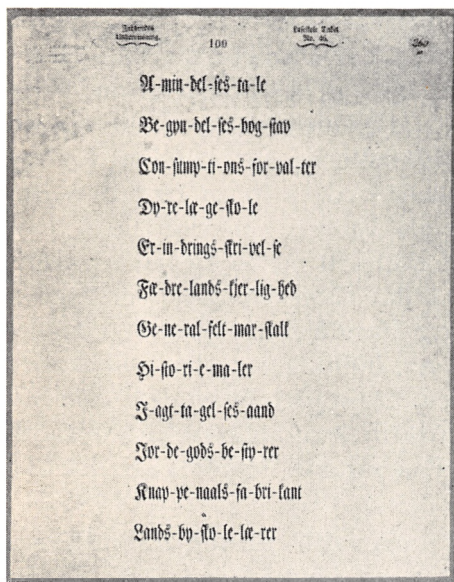 Indbyrdes
Underviisning.
100
Tabel
No. 46.
A-min-del-ses-ta-le
Be-gyn-del-ses-bog-stav
Con-sump-ti-ons-for-val-ter
Dy-re-læ-ge-sko-le
Er-in-drings-skri-vel-se
Fæ-dre-lands-kjer-lig-hed
Ge-ne-ral-felt-mar-skalk
Hi-sto-ri-e-ma-ler
I-agt-ta-gel-ses-aand
Jor-de-gods-be-sty-rer
Knap-pe-naals-fa-bri-kant
Lands-by-sko-le-læ-rer